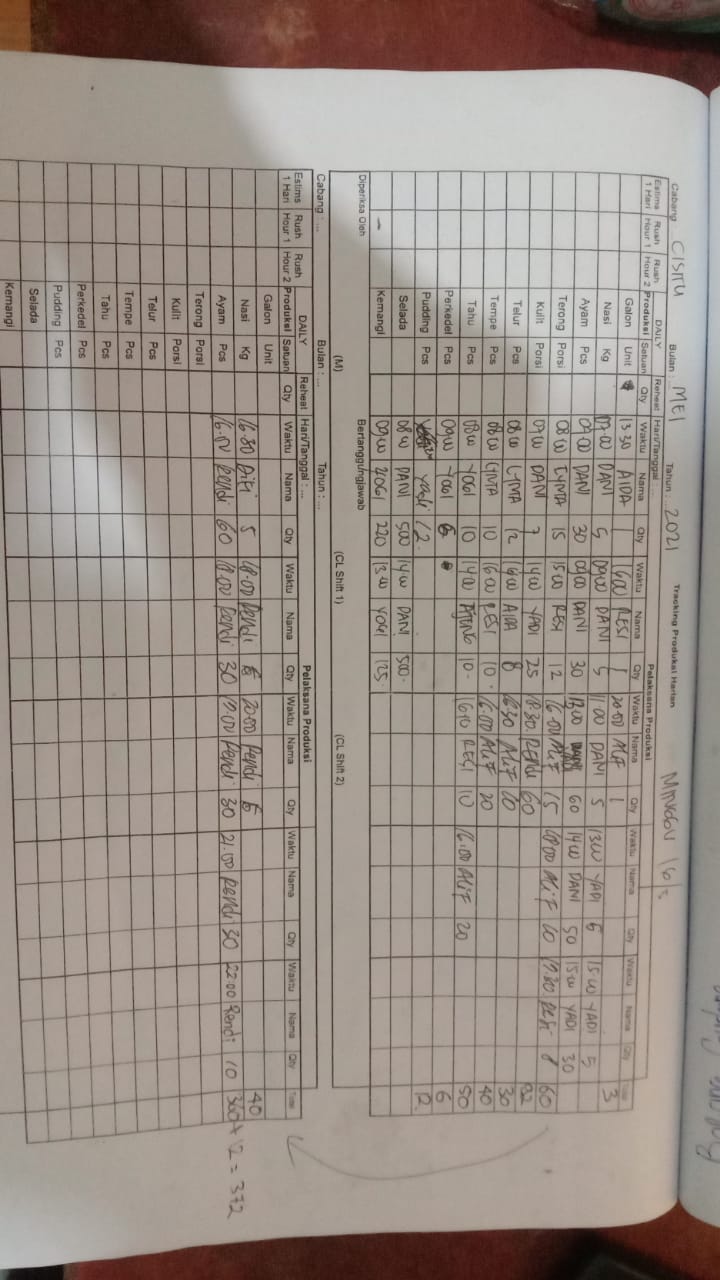 Tracking Produksi Harian
Cabang CISITU Bulan : MEI Tahun : 2021 MINGGU 16/5
Estims 1 Hari Rush Hour 1 Rush Hour 2 DAILY Produksi Satuan Reheat Qty Hari/Tanggal : ... Pelaksana Produksi
Waktu Nama Qty Waktu Nama Qty Waktu Nama Qty Waktu Nama Qty Waktu Nama Qty Total
Galon Unit 13.30 AIDA 1 16.00 RESI 1 20.00 ALIF 1 3
Nasi Kg 07.00 DANI 5 09.00 DANI 5 11.00 DANI 5 13.00 YADI 6 15.00 YADI 5
Ayam Pcs 07.00 DANI 30 09.00 DANI 30 13.00 60 14.00 DANI 50 15.00 YADI 30
Terong Porsi 08.00 15 15.00 RESI 12 16.00 ALIF 15 ALIF 10 19.30 8 60
Kulit Porsi 07.00 DANI 7 14.00 YADI 25 18.30 RENDI 60 92
Telur Pcs 08.00 12 16.00 AIDA 8 18.30 ALIF 10 30
Tempe Pcs 08.00 10 16.00 RESI 10 16.00 ALIF 20 40
Tahu Pcs 08.00 YOGI 10 14.00 10 16.10 RESI 10 16.00 ALIF 20 50
Perkedel Pcs 09.00 YOGI 6 6
Pudding Pcs Yadi 12 12
Selada 08.00 DANI 500 14.00 DANI 500
Kemangi 09.00 YOGI 220 13.00 YOGI 125
Diperiksa Oleh (M) Bertanggungjawab (CL Shift 1) (CL Shift 2)
Cabang : ... Bulan : ... Tahun : ...
Estims 1 Hari Rush Hour 1 Rush Hour 2 DAILY Produksi Satuan Reheat Qty Hari/Tanggal : ... Pelaksana Produksi
Waktu Nama Qty Waktu Nama Qty Waktu Nama Qty Waktu Nama Qty Waktu Nama Qty Total
Galon Unit
Nasi Kg 16.30 5 18.00 Rendi 6 20.00 Rendi 6 40
Ayam Pcs 16.00 Rendi 60 18.00 Rendi 30 19.00 Rendi 30 21.00 Rendi 30 22.00 Rendi 10 360 + 12 = 372
Terong Porsi
Kulit Porsi
Telur Pcs
Tempe Pcs
Tahu Pcs
Perkedel Pcs
Pudding Pcs
Selada
Kemangi